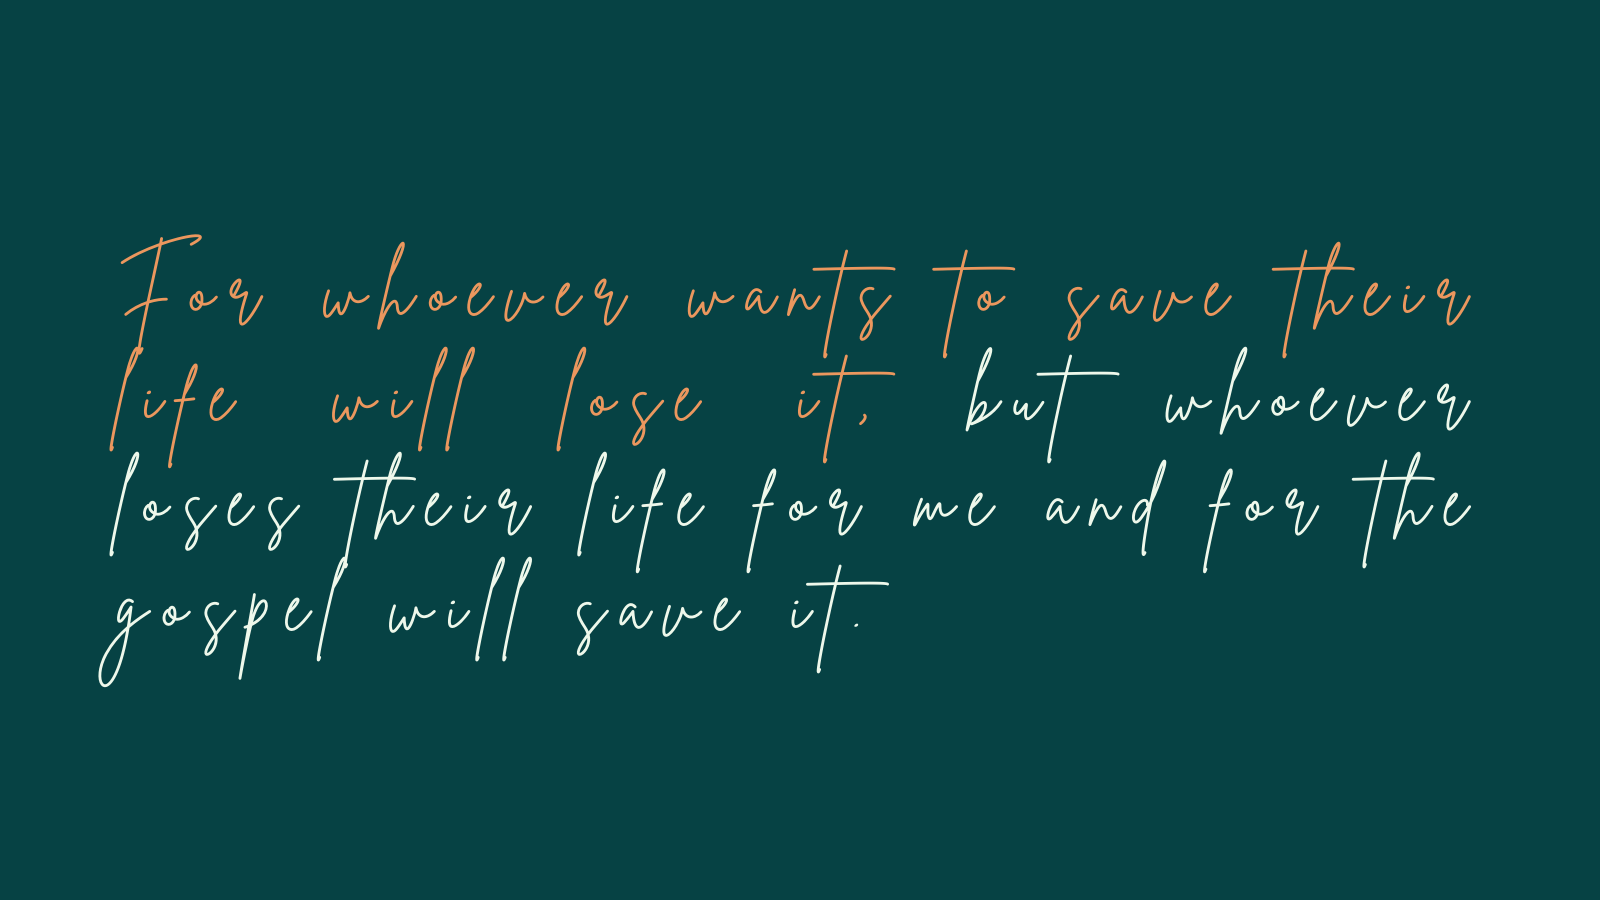 For whoever wants to save their
life will lose it, but whoever
loses their life for me and for the
gospel will save it.